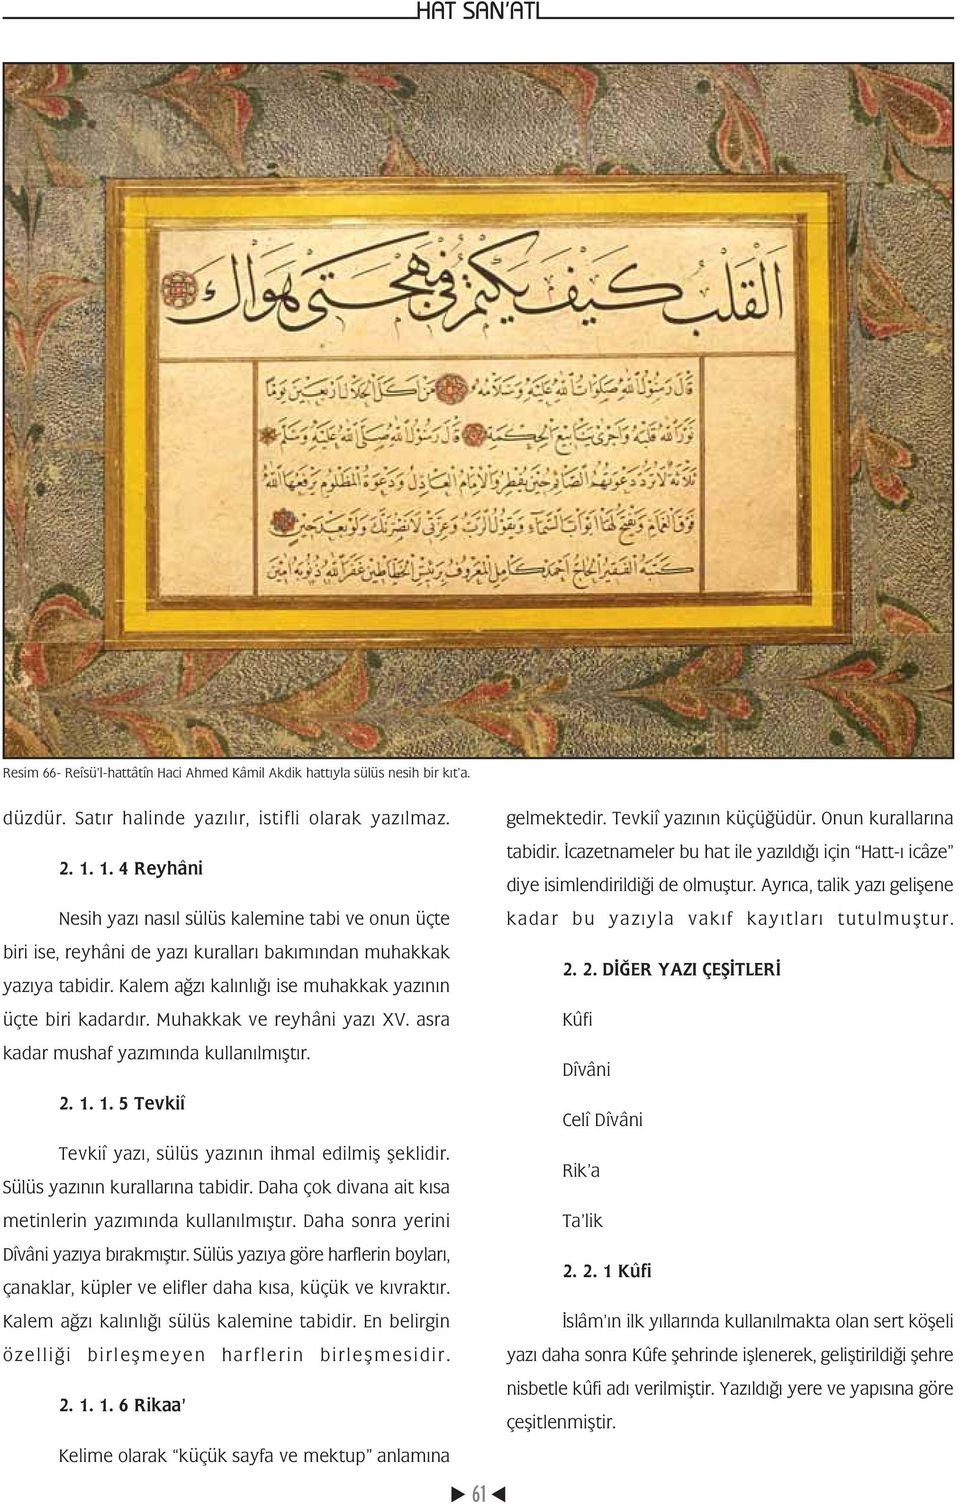 HAT SAN'ATI
القلب كيف يكتم في مهجتي هواك
قال رسول الله صلوات الله عليه وسلامه من اكل الحلال اربعين يوما
نور الله قلبه واجرى ينابيع الحكمة قال رسول الله صلى الله عليه وسلم
ثلاثة لا ترد دعوتهم الصائم حين يفطر والامام العادل ودعوة المظلوم يرفعها الله
فوق الغمام ويفتح لها ابواب السماء ويقول الرب وعزتي لانصرنك ولو بعد حين
كتبه الفقير الحاج احمد كامل المعروف برئيس الخطاطين غفر الله ذنوبه امين
Resim 66- Reîsü'l-hattâtîn Haci Ahmed Kâmil Akdik hattıyla sülüs nesih bir kıt'a.
düzdür. Satır halinde yazılır, istifli olarak yazılmaz.
2. 1. 1. 4 Reyhâni
Nesih yazı nasıl sülüs kalemine tabi ve onun üçte
biri ise, reyhâni de yazı kuralları bakımından muhakkak
yazıya tabidir. Kalem ağzı kalınlığı ise muhakkak yazının
üçte biri kadardır. Muhakkak ve reyhâni yazı XV. asra
kadar mushaf yazımında kullanılmıştır.
2. 1. 1. 5 Tevkiî
Tevkiî yazı, sülüs yazının ihmal edilmiş şeklidir.
Sülüs yazının kurallarına tabidir. Daha çok divana ait kısa
metinlerin yazımında kullanılmıştır. Daha sonra yerini
Dîvâni yazıya bırakmıştır. Sülüs yazıya göre harflerin boyları,
çanaklar, küpler ve elifler daha kısa, küçük ve kıvraktır.
Kalem ağzı kalınlığı sülüs kalemine tabidir. En belirgin
özelliği birleşmeyen harflerin birleşmesidir.
2. 1. 1. 6 Rikaa'
Kelime olarak “küçük sayfa ve mektup” anlamına
gelmektedir. Tevkiî yazının küçüğüdür. Onun kurallarına
tabidir. İcazetnameler bu hat ile yazıldığı için “Hatt-ı icâze”
diye isimlendirildiği de olmuştur. Ayrıca, talik yazı gelişene
kadar bu yazıyla vakıf kayıtları tutulmuştur.
2. 2. DİĞER YAZI ÇEŞİTLERİ
Kûfi
Dîvâni
Celî Dîvâni
Rik'a
Ta'lik
2. 2. 1 Kûfi
İslâm'ın ilk yıllarında kullanılmakta olan sert köşeli
yazı daha sonra Kûfe şehrinde işlenerek, geliştirildiği şehre
nisbetle kûfi adı verilmiştir. Yazıldığı yere ve yapısına göre
çeşitlenmiştir.
61